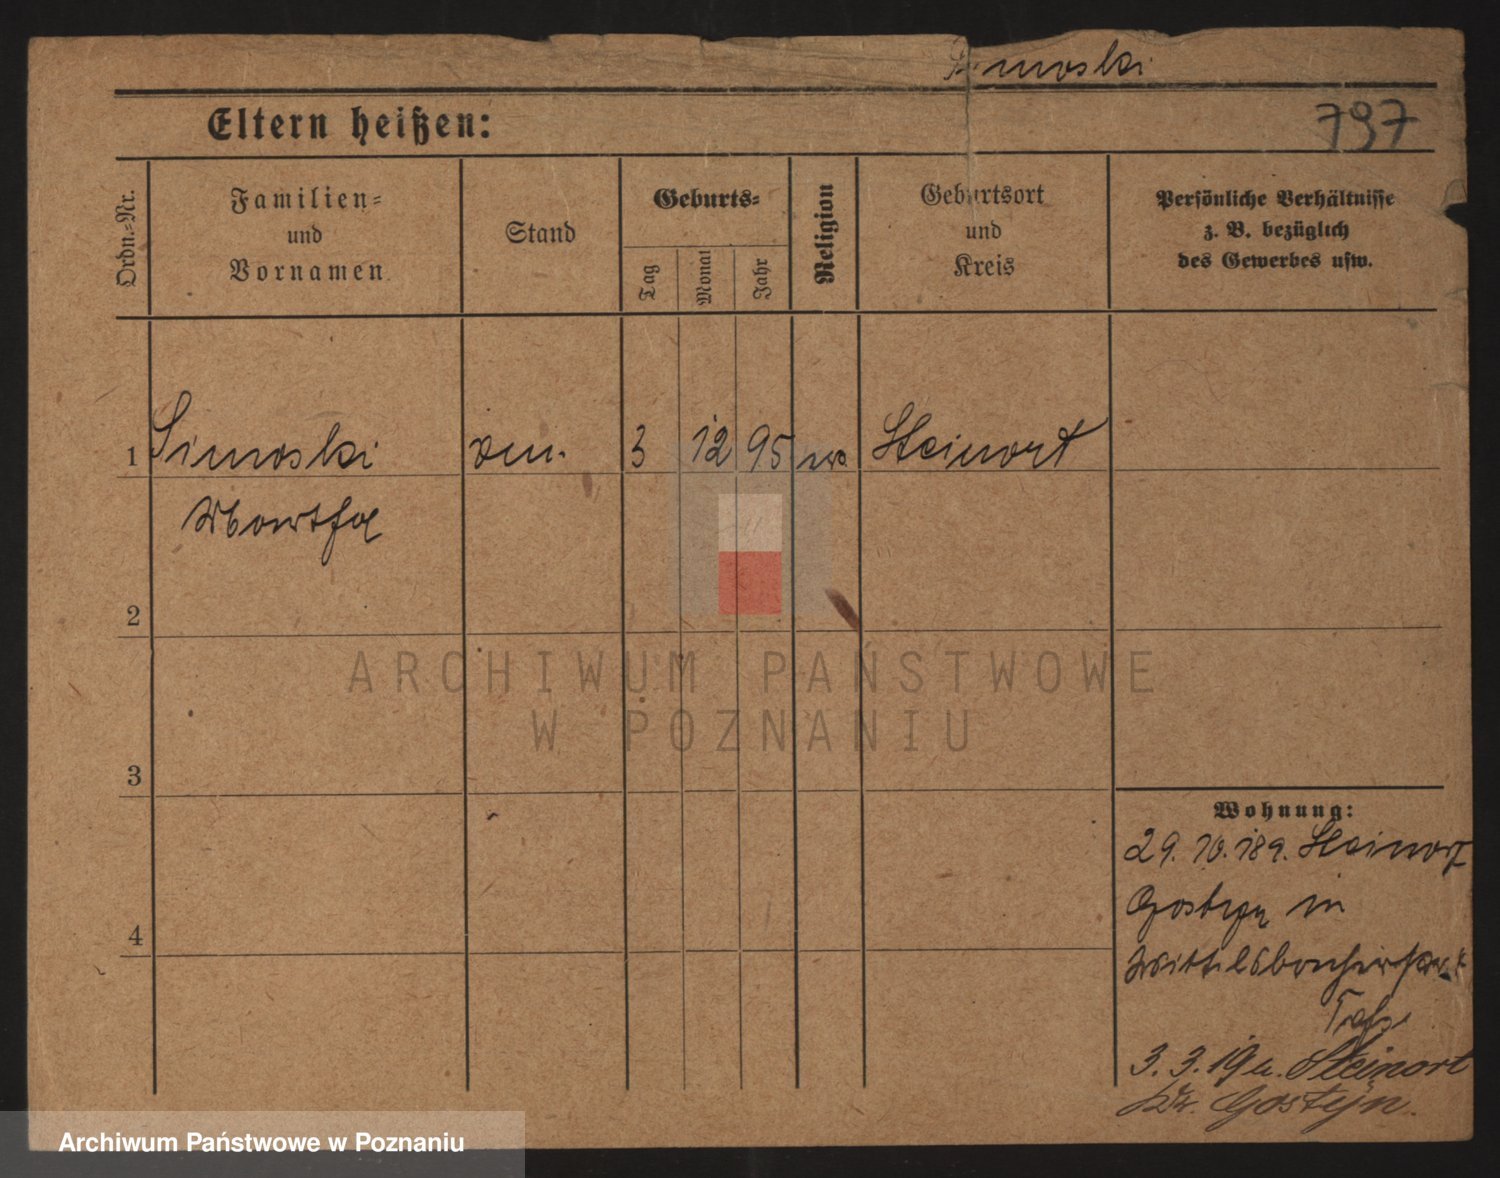 Simoski
Eltern heißen:
797
Ordn.-Nr.
Familien=
und
Vornamen
Stand
Geburts=
Tag
Monat
Jahr
Religion
Geburtsort
und
Kreis
Persönliche Verhältnisse
z. B. bezüglich
des Gewerbes usw.
1 Simoski 3 12 95 Steinort
Martha
2
3
4
ARCHIWUM PAŃSTWOWE
W POZNANIU
Wohnung:
29. 10. 189. Steinort
Gostyn in
3. 3. 19 u. Steinort
Kr. Gostyn.
Archiwum Państwowe w Poznaniu